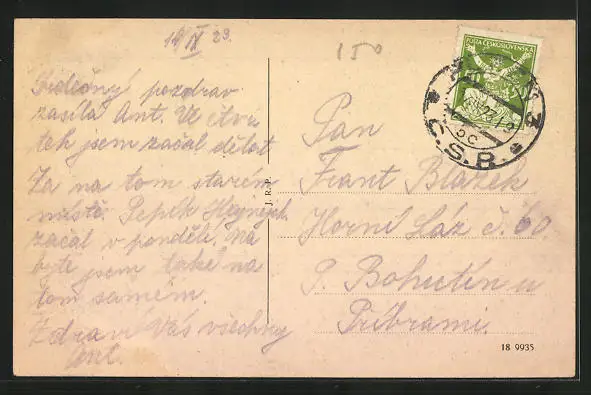 19/IV 23
150
Srdečný pozdrav
zasílá Ant. Ve čtvr
tek jsem začal dělat
Za na tom starém
místě. Pepík Hejných
začal v pondělí. Na
bytě jsem také na
tom samém.
Zdraví Vás všechny
Ant.
J. R. P.
POŠTA ČESKOSLOVENSKÁ
3
5c
Č.S.R.
Pan
Frant Blažek
Horní Láz č. 60.
P. Bohutín u
Příbrami.
18 9935